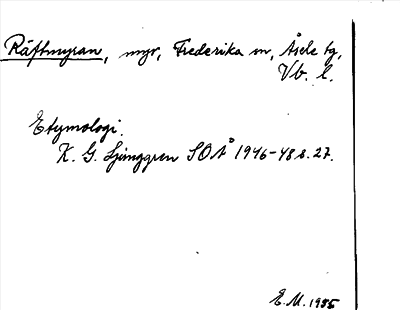 Räftmyran, myr, Frederika sn, Åsele tg,
Vb. l.
Etymologi.
K. G. Ljunggren SOÅ 1946-48 s. 27.
E.M. 1985